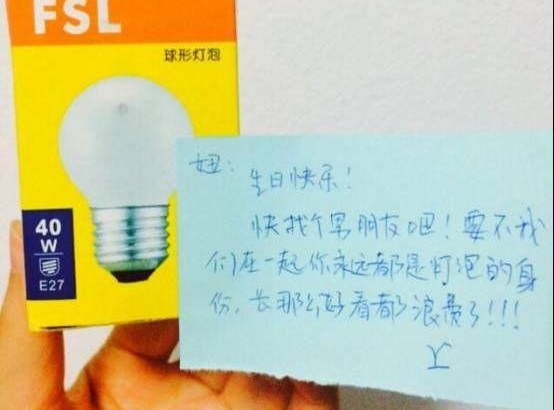 FSL
球形灯泡
40
W
E27
妞:
生日快乐!
快找个男朋友吧!要不我
们在一起你永远都是灯泡的身
份,长那么好看都浪费了!!!